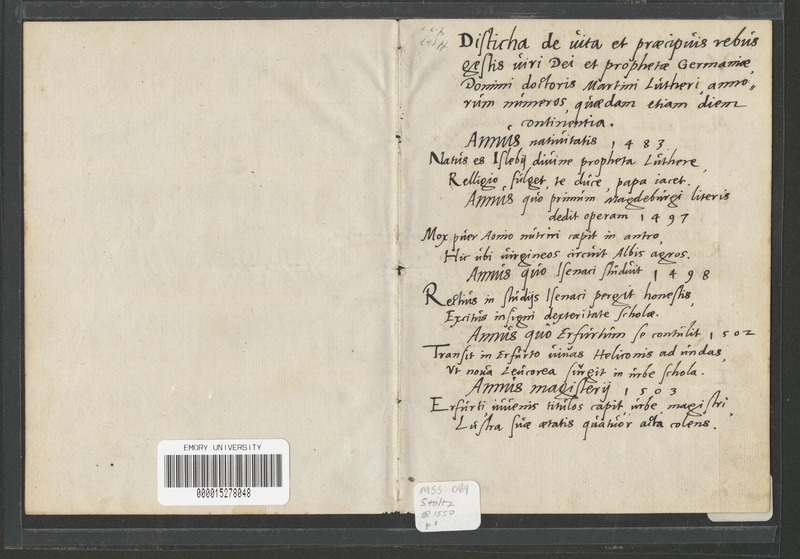 Disticha de vita et præcipuis rebus
gestis viri Dei et prophetæ Germaniæ,
Domini doctoris Martini Lutheri, anno⸗
rum numeros, quædam etiam diem
continentia.
Annus nativitatis 1483.
Natus es Islebij divine propheta Luthere,
Relligio fulget, te duce, papa iacet.
Annus quo primum Magdeburgi literis
dedit operam 1497
Mox puer Aonio nutriri cæpit in antro,
Hic ubi virgineos circuit Albis agros.
Annus quo Isenaci studuit 1498
Rectius in studijs Isenaci pergit honestis
Excitus insigni dexteritate scholæ.
Annus quo Erfurtum se contulit 1502
Transit in Erfurto vivas Heliconis ad undas,
Ut nova Leucorea surgit in urbe schola.
Annus magisterij 1503
Erfurti iuvenis titulos capit urbe magistri,
Lustra suæ ætatis quatuor acta colens.
EMORY UNIVERSITY
000015278048
MSS 089
Stoltz
@ 1550